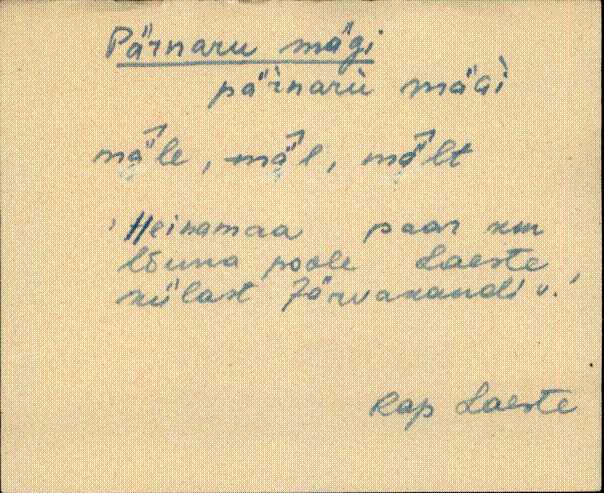 Pärnaru mägi
pär̀narù mäG̀ì
mä̀le, mä̀l, mä̀lt
'Heinamaa paar km
lõuna poole Laeste
külast Järvakandi v.'
Rap Laeste